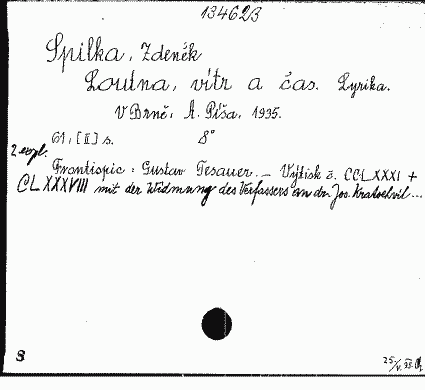 134623
Spilka, Zdeněk
Loutna, vítr a čas. Lyrika.
V Brně, A. Píša, 1935.
61, [II] s. 8°
2 expl.
Frontispic: Gustav Tesauer. – Výtisk č. CCLXXXI +
CLXXXVIII mit der Widmung des Verfassers an dr. Jos. Kratochvil...
8